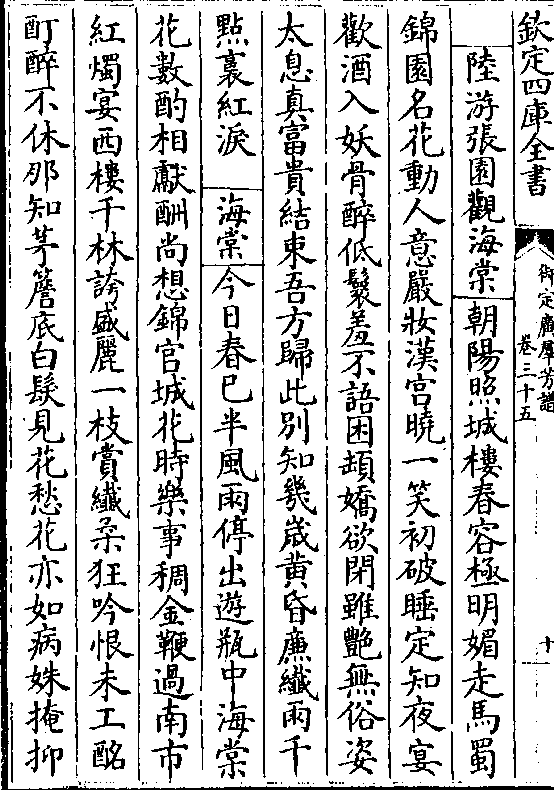 欽定四庫全書
御定廣羣芳譜
卷三十五
十
陸游張園觀海棠 朝陽照城樓春容極明媚走馬蜀
錦園名花動人意嚴妝漢宮曉一笑初破睡定知夜宴
歡酒入妖骨醉低鬟羞不語困頰嬌欲閉雖艷無俗姿
太息真富貴結束吾方歸此別知幾歲黃昏廉纖雨千
點裛紅淚 海棠 今日春已半風雨停出遊瓶中海棠
花數酌相獻酬尚想錦官城花時樂事稠金鞭過南市
紅燭宴西樓千林誇盛麗一枝賞纖柔狂吟恨未工酩
酊醉不休那知茅簷底白髮見花愁花亦如病姝掩抑